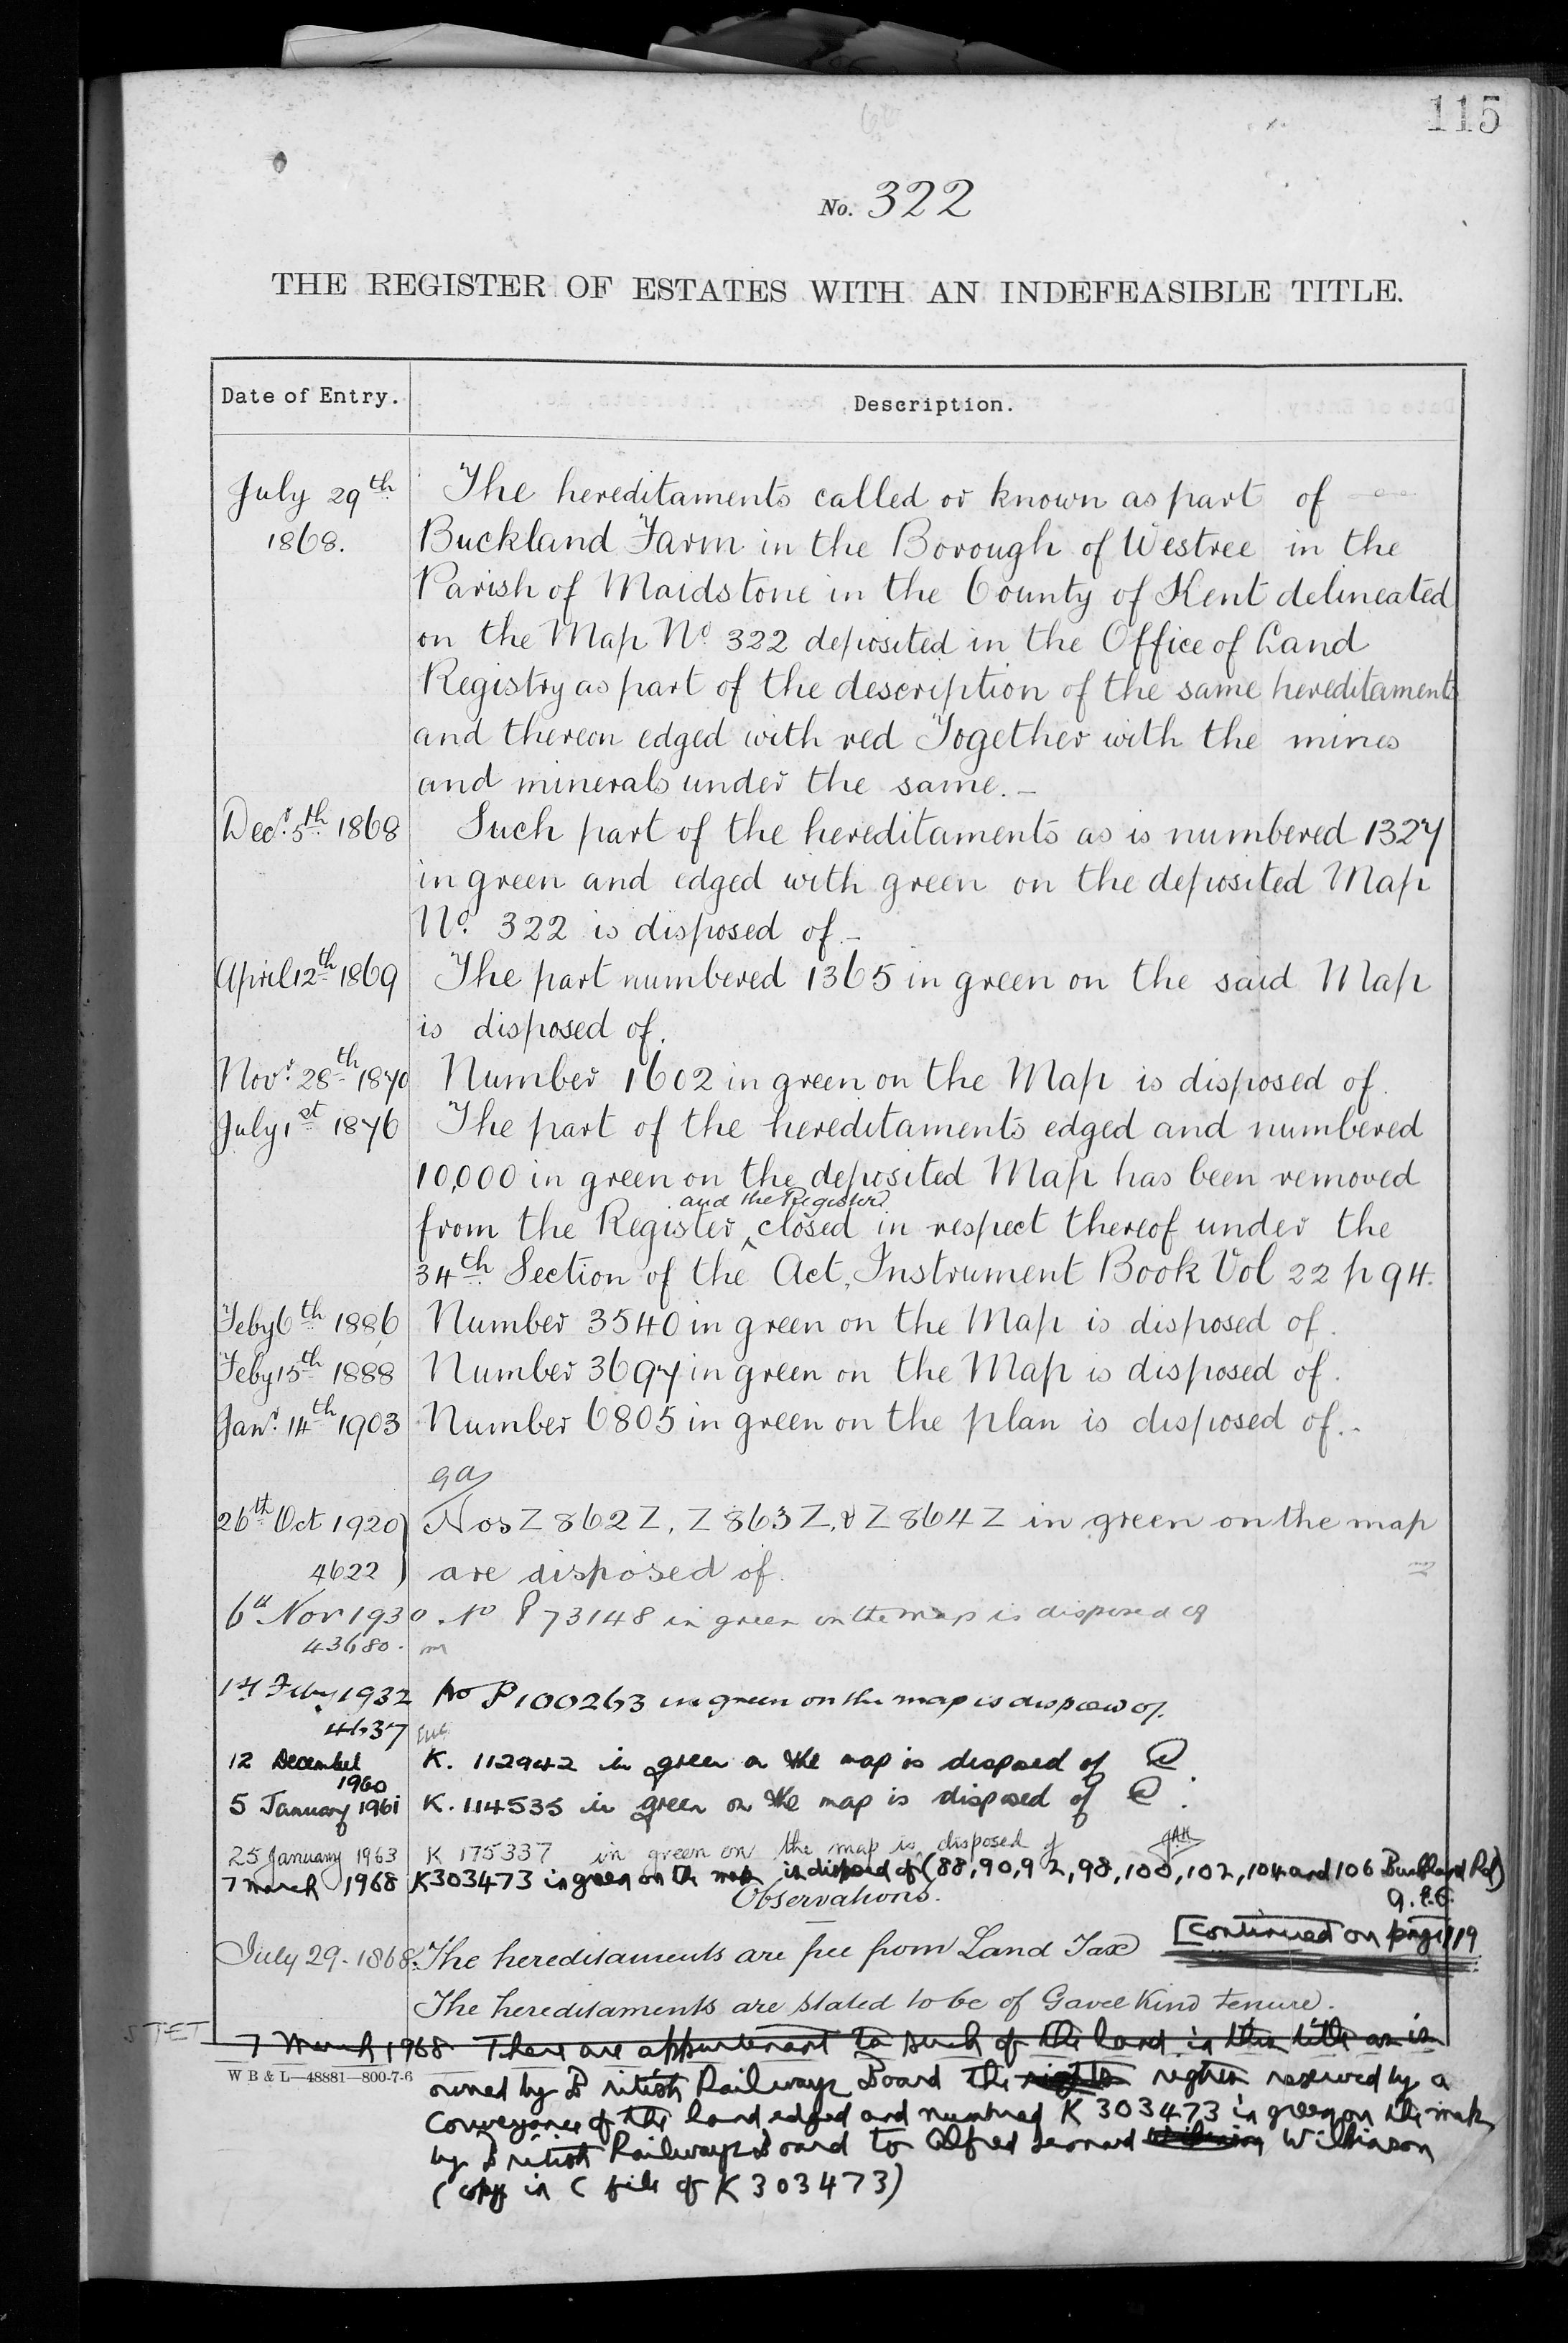 115
No. 322
THE REGISTER OF ESTATES WITH AN INDEFEASIBLE TITLE.
Date of Entry. Description.
July 29th The hereditaments called or known as part of
1868. Buckland Farm in the Borough of Westree in the
Parish of Maidstone in the County of Kent delineated
on the Map No. 322 deposited in the Office of Land
Registry as part of the description of the same hereditaments
and thereon edged with red Together with the mines
and minerals under the same.–
Decr. 5th 1868 Such part of the hereditaments as is numbered 1327
in green and edged with green on the deposited Map
No. 322 is disposed of.–
April 12th 1869 The part numbered 1365 in green on the said Map
is disposed of.
Novr. 28th 1870 Number 1602 in green on the Map is disposed of.
July 1st 1876 The part of the hereditaments edged and numbered
10,000 in green on the deposited Map has been removed
and the Register
from the Register ^ closed in respect thereof under the
34th Section of the Act, Instrument Book Vol 22 p 94.
Feby 6th 1886 Number 3540 in green on the Map is disposed of.
Feby 15th 1888 Number 3697 in green on the Map is disposed of.
Janr. 14th 1903 Number 6805 in green on the plan is disposed of.-
26th Oct 1920) Nos Z 862 Z, Z 863 Z, & Z 864 Z in green on the map
4622 ) are disposed of.
6th Nov 1930. No P 73148 in green on the map is disposed of
43680.
Feby 1932 No P100263 in green on the map is disposed of.
4637
12 December K. 112942 in green on the map is disposed of
1960
5 January 1961 K. 114535 in green on the map is disposed of
25 January 1963 K 175337 in green on the map is disposed of
7 March 1968 K303473 in green on the map is disposed of (88, 90, 92, 98, 100, 102, 104 and 106 Buckland Rd)
Observations.
July 29. 1868. The hereditaments are free from Land Tax [continued on page 119
The hereditaments are stated to be of Gavel Kind tenure.
STET
7 March 1968 There are appurtenant to such of the land in this title as is
W B & L—48881—800-7-6
owned by British Railways Board the rights rights reserved by a
Conveyance of the land edged and numbered K 303473 in green on the map
by British Railways Board to Alfred Leonard Wilkinson
(copy in C file of K 303473)